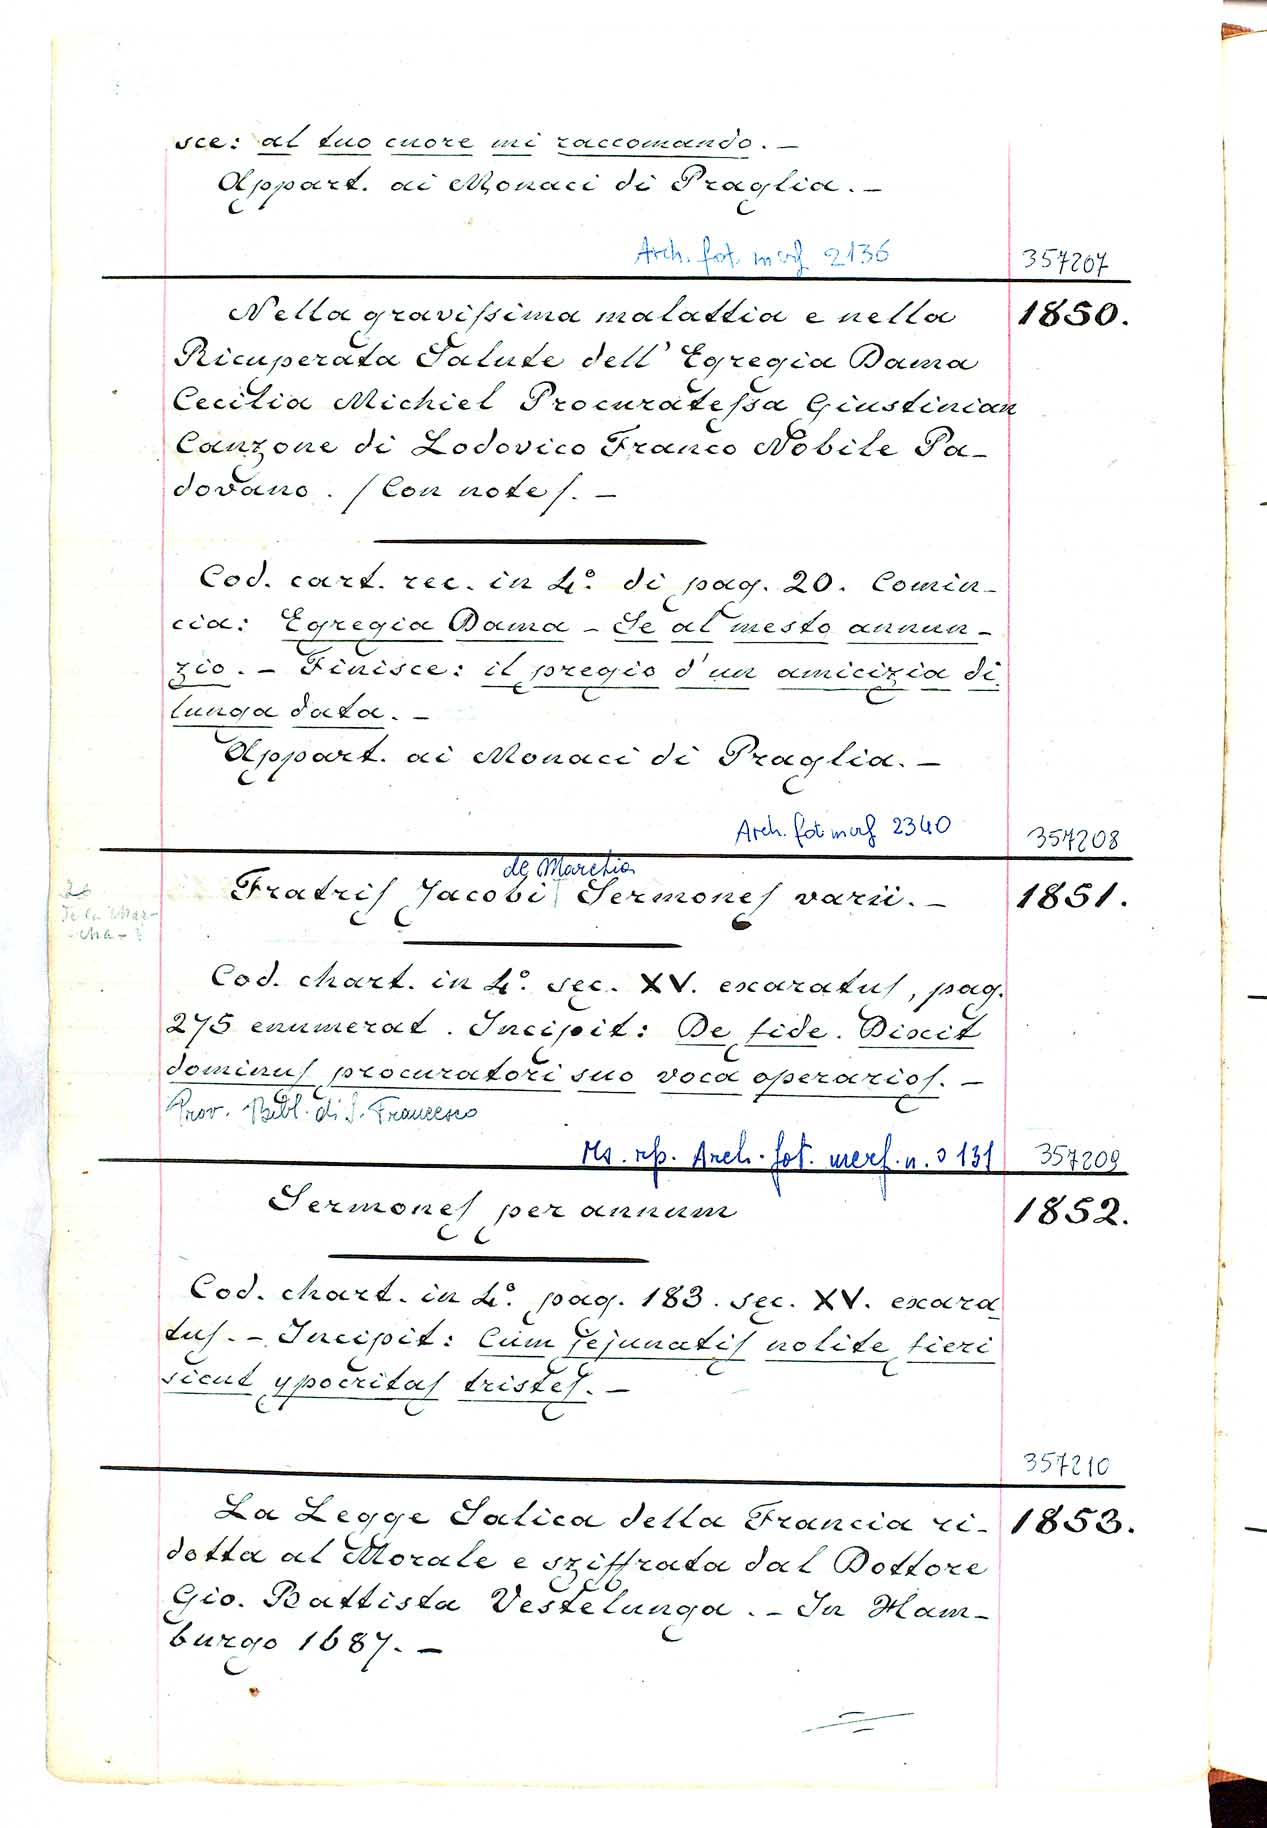 sce: al tuo cuore mi raccomando. –
Appart. ai Monaci di Praglia. –
Arch. fot. merf 2136 357207
Nella gravissima malattia e nella 1850.
Ricuperata Salute dell' Egregia Dama
Cecilia Michiel Procuratessa Giustinian
Canzone di Lodovico Franco Nobile Pa-
dovano. / Con note/. –
Cod. cart. rec. in 4º. di pag. 20. Comin-
cia: Egregia Dama – Se al mesto annun-
zio. – Finisce: il pregio d'un amicizia di
lunga data. –
Appart. ai Monaci di Praglia. –
Arch. fot merf 2340 357208
de Marchia
Fratris Jacobi Sermones varii. – 1851.
Cod. chart. in 4º. sec. XV. exaratus, pag.
275 enumerat. Incipit: De fide. Dixit
dominus procuratori suo voca operarios. –
Prov. Bibl. di S. Francesco
Ms. rip. Arch. fot. merf. n. 3131 357209
Sermones per annum 1852.
Cod. chart. in 4º. pag. 183. sec. XV. exara
tus. – Incipit: Cum jejunatis nolite fieri
sicut ypocritas tristes. –
357210
La Legge Salica della Francia ri- 1853.
dotta al Morale e sziffrata dal Dottore
Gio. Battista Vestelunga. – In Ham-
burgo 1687. –